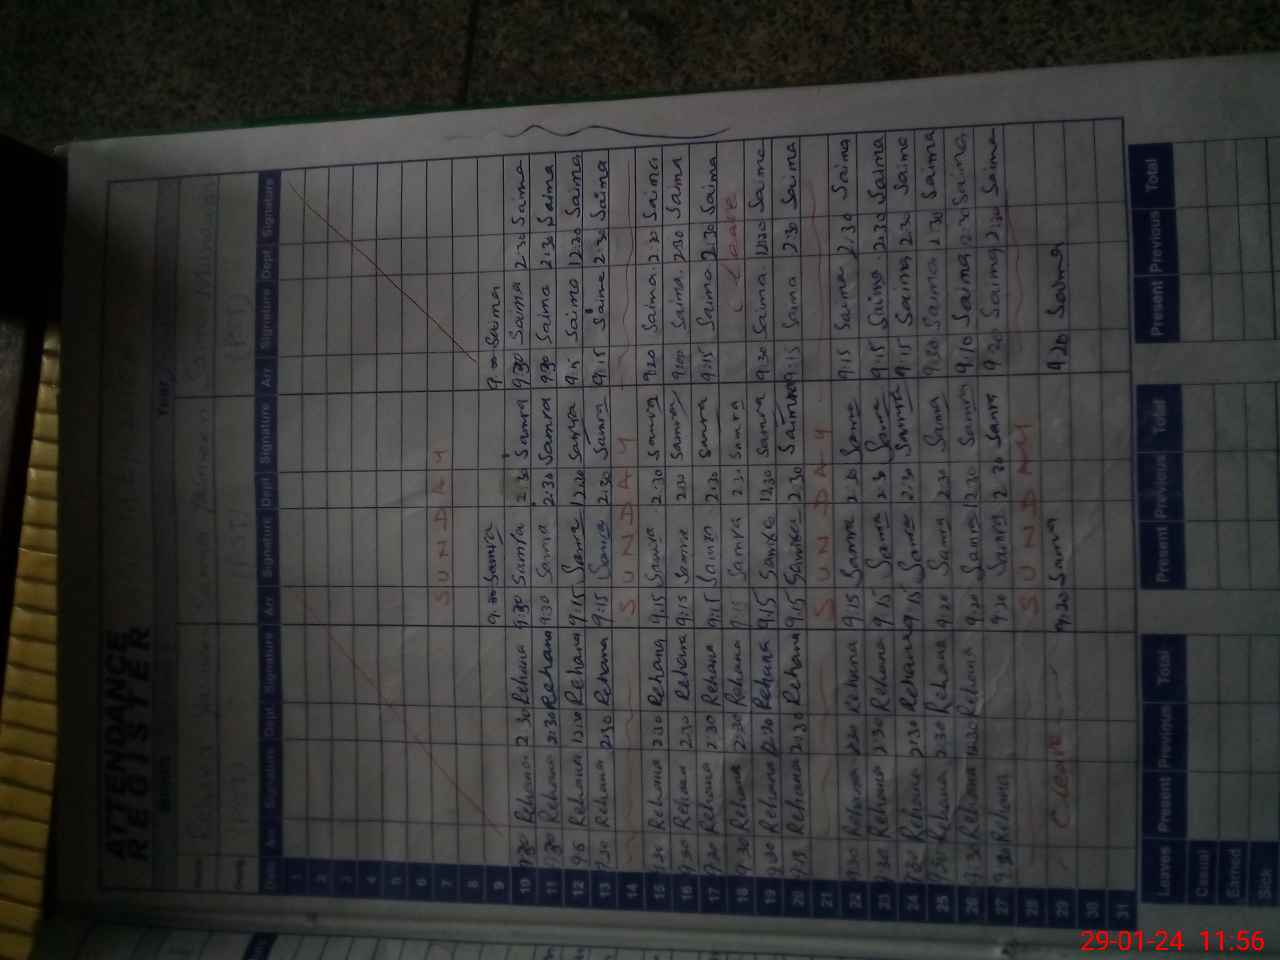 ATTENDANCE
REGISTER
Date Arr Signature Dept Signature Arr Signature Dept Signature Arr Signature Dept Signature
1
2
3
4
5
6
7 SUNDAY
8
9 Samra Saima
10 Rehana 2:30 Rehana 9:30 Samra 2:30 Samra 9:30 Saima 2:30 Saima
11 Rehana 2:30 Rehana 9:30 Samra 2:30 Samra 9:30 Saima 2:30 Saima
12 Rehana 12:30 Rehana 9:15 Samra 12:30 Samra Saima 12:30 Saima
13 Rehana 2:30 Rehana 9:15 Samra 2:30 Samra 9:15 Saima 2:30 Saima
14 SUNDAY
15 Rehana 2:30 Rehana 9:15 Samra 2:30 Samra 9:20 Saima 2:30 Saima
16 9:30 Rehana 2:30 Rehana 9:15 Samra 2:30 Samra Saima 2:30 Saima
17 9:30 Rehana 2:30 Rehana 9:15 Samra 2:30 Samra 9:15 Saima 2:30 Saima
18 9:30 Rehana 2:30 Rehana 9:15 Samra 2:30 Samra Leave
19 9:30 Rehana 12:30 Rehana 9:15 Samra 12:30 Samra 9:30 Saima 12:30 Saima
20 9:15 Rehana 2:30 Rehana 9:15 Samra 2:30 Samra 9:15 Saima 2:30 Saima
21 SUNDAY
22 9:30 Rehana 2:30 Rehana 9:15 Samra 2:30 Samra 9:15 Saima 2:30 Saima
23 9:30 Rehana 2:30 Rehana 9:15 Samra 2:30 Samra 9:15 Saima 2:30 Saima
24 9:30 Rehana 2:30 Rehana 9:15 Samra 2:30 Samra 9:15 Saima 2:30 Saima
25 9:30 Rehana 2:30 Rehana 9:20 Samra 2:30 Samra 9:20 Saima 2:30 Saima
26 9:30 Rehana 12:30 Rehana 9:20 Samra 12:30 Samra 9:10 Saima 12:30 Saima
27 9:30 Rehana 9:20 Samra 2:30 Samra 9:20 Saima 2:30 Saima
28 SUNDAY
29 C Leave 9:20 Samra 9:20 Saima
30
31
Leaves Present Previous Total Present Previous Total Present Previous Total
Casual
Earned
Sick
29-01-24 11:56